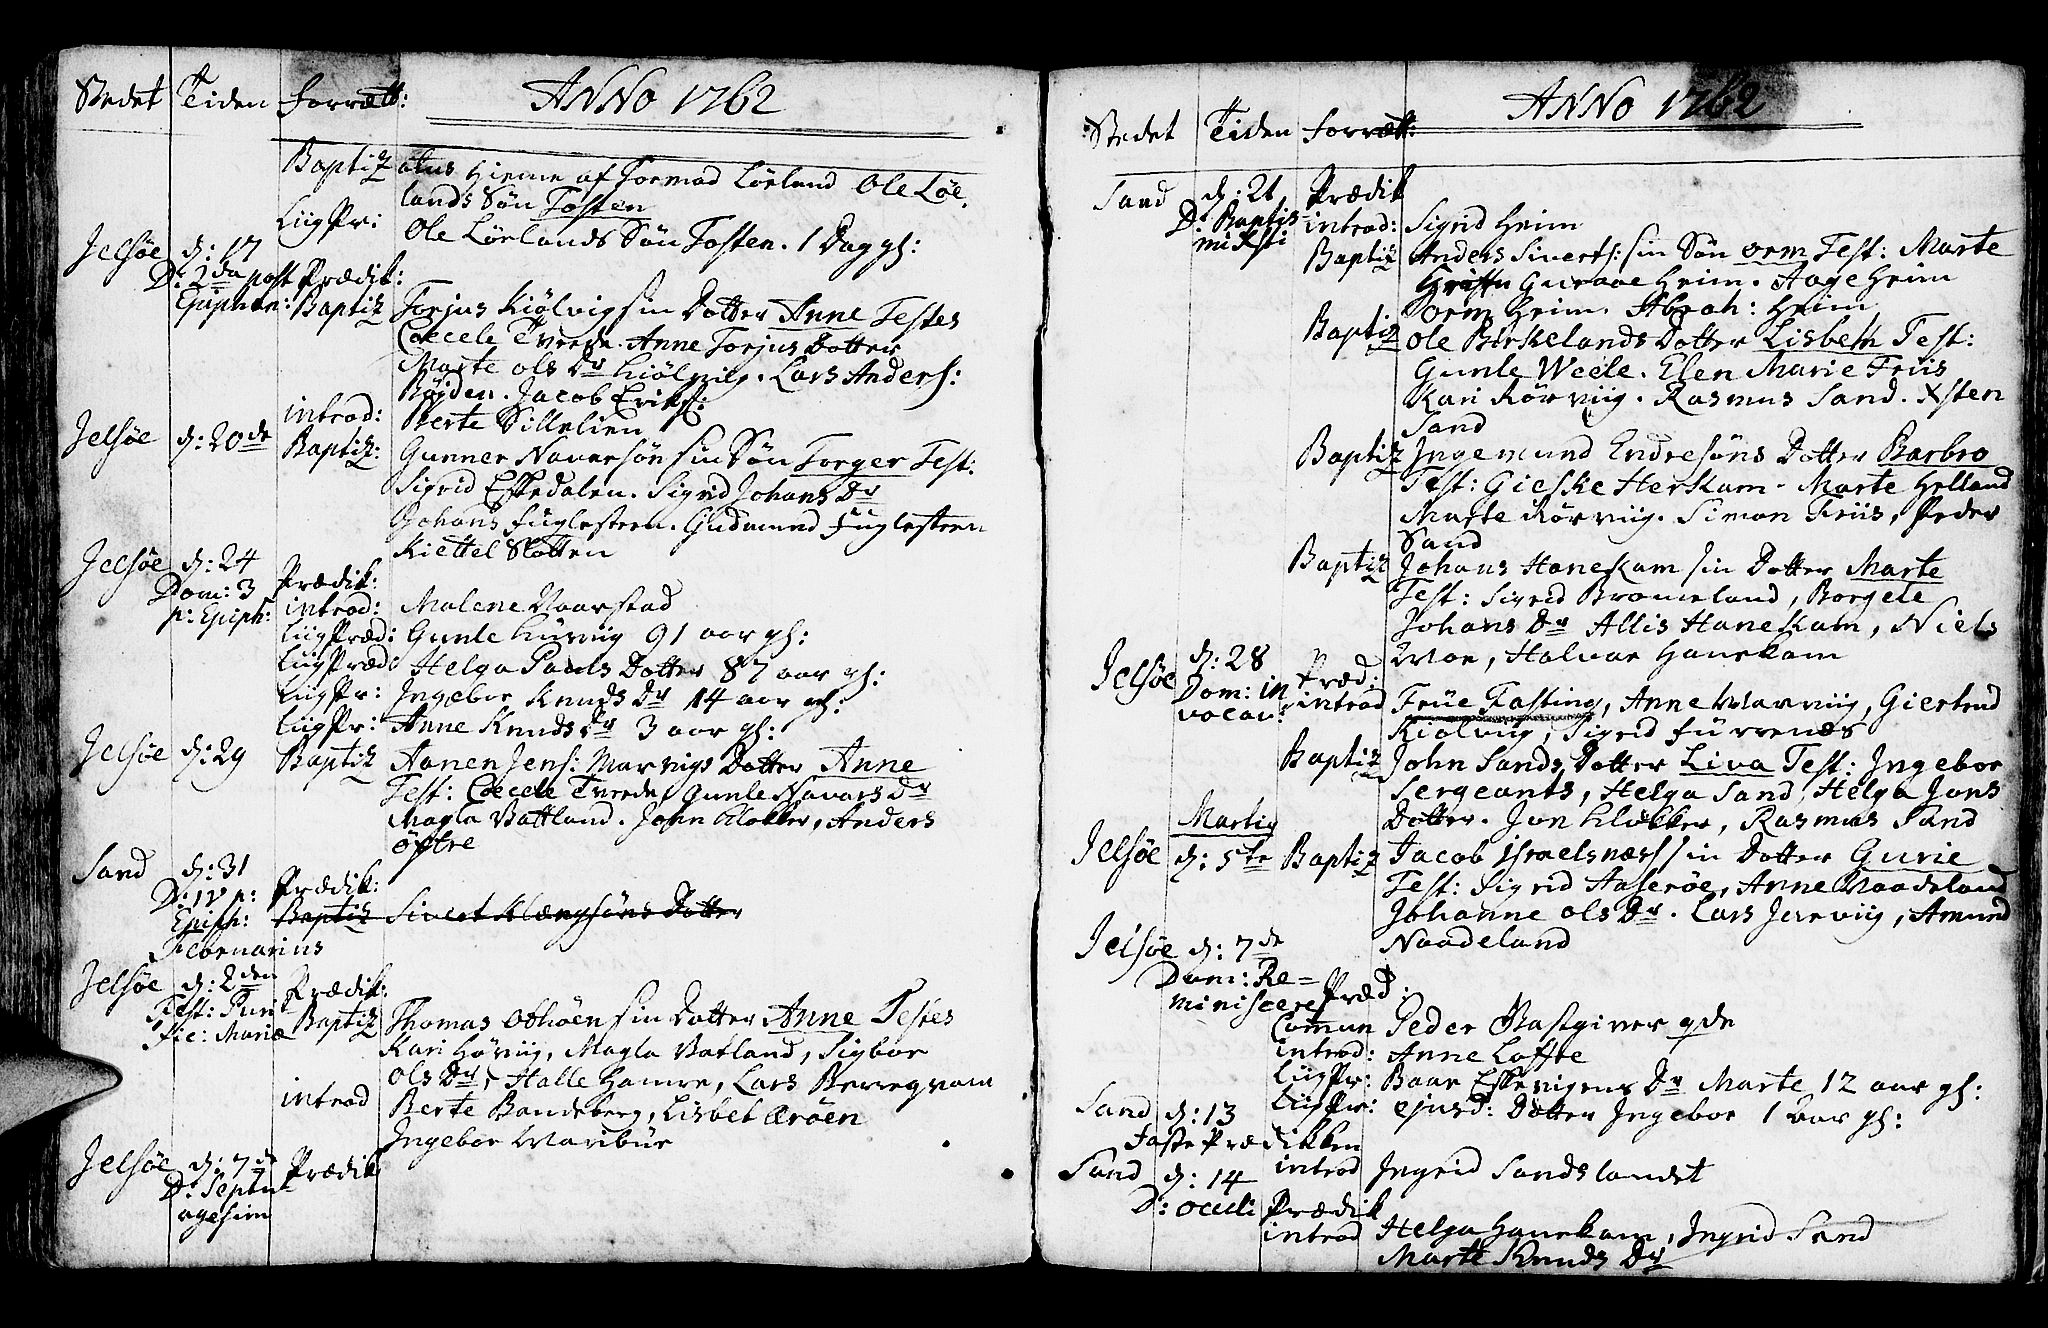 Stedet Tiden Forrætt: ANNO 1762
Baptiz atus Hieme af Tormod Lørland Ole Løe,
lands Søn Tosten
Liig Pr: Ole Lørlands Søn Tosten. 1 Dag gl:
Jelsøe d: 17
D: 2da post Prædik:
Epiphan: Baptiz Torjus Kiølvig sin Dotter Anne Testes
Cecele Tveede. Anne Torjus Dotter
Marte ols Dr Kiølvig. Lars Anders:
Røjden. Jacob Eriks:
introd: Berte Sillelien
Jelsøe d: 20de Baptiz: Gunner Naversøn sin Søn Torger Test:
Sigrid Eskedalen. Sigrid Johans Dr
Johans Fuglesteen. Gudmund Fuglesteen
Kiettel Slotten
Jelsøe d: 24
Dom: 3 Prædik:
p: Epiph: introd: Malene Vaarstad
Liig Præd: Gunle Hurvig 91 aar gl:
Liig Præd. Helga Pauls Dotter 87 aar gl:
Liig Pr: Ingebor Knuds Dr 14 aar gl:
Liig Pr: Anne Knuds Dr 3 aar gl:
Jelsøe d: 29 Baptiz Aanen Jens: Marvigs Dotter Anne
Test: Cecele Tveede, Gunle Navars Dr
Magla Battland. John Klokker, Anders
øftre
Sand d: 31
D: IV p: Prædik:
Epiph: Baptiz Sivert Klængsøns Dotter
Februarius
Jelsøe d: 2den Prædik:
Fest: Puri Baptiz Thomas Othøen sin Dotter Anne Testes
fic: Mariæ Kari Høviig, Magla Batland, Sigbor
ols Dr, Halle Hamre, Lars Berregvam
introd Berte Bandeberg, Lisbet Ærøen
Ingebor Waribür
Jelsøe d: 7de Prædik
D: Septu
agesim
Stedet Tiden Forrætt: ANNO 1762
Sand d: 21 Prædik
D: Baptis introd: Sigrid Heim
mi Xsti Baptiz Anders Siverts: sin Søn orm Test: Marte
Guraae Heim. Aage Heim
orm Heim. Abrah: Heim
Baptiz Ole Birkelands Dotter Lisbeth Test:
Gunle Weele. Elen Marie Friis
Kari Rørviig. Rasmus Sand. Xsten
Sand
Baptiz Ingemund Endresøns Dotter Barbro
Test: Gieske Herskam. Marte Helland
Marte Rørviig. Simon Friis, Peder
Sand
Baptiz Johans Haneskam sin Dotter Marte
Test: Sigrid Bromeland, Borgele
Johans Dr Allis Haneskam, Niels
Woe, Halvar Hanekam
Jelsøe d: 28 Præd:
Dom: in introd Frue Fasting, Anne Marviig, Giertrud
vocav: Kiølviig, Sigrid Furrenæs
Baptiz John Sands Dotter Liva Test: Ingebor
Sergeants, Helga Sand, Helga Jons
Dotter. Jon Klokker, Rasmus Sand
Martig
Jelsøe d: 5te Baptiz Jacob Israelsnæs sin Dotter Gurie
Test: Sigrid Aaserøe, Anne Naadeland
Johanne ols Dr. Lars Jerviig, Amund
Naadeland
Jelsøe d: 7de
Dom: Re=
miniscere Præd:
Comun Peder Bastgiver gde
introd: Anne Lofte
Liig Pr: Baar Eskevigens Dr Marte 12 aar gl:
Liig Pr: ejusd: Dotter Ingebor 1 aar gl:
Sand d: 13
Faste Prædikken
introd Ingrid Sandslandet
Sand d: 14
D: oculi Prædik
introd Helga Hanekam, Ingrid Sand
Marte Knuds Dr